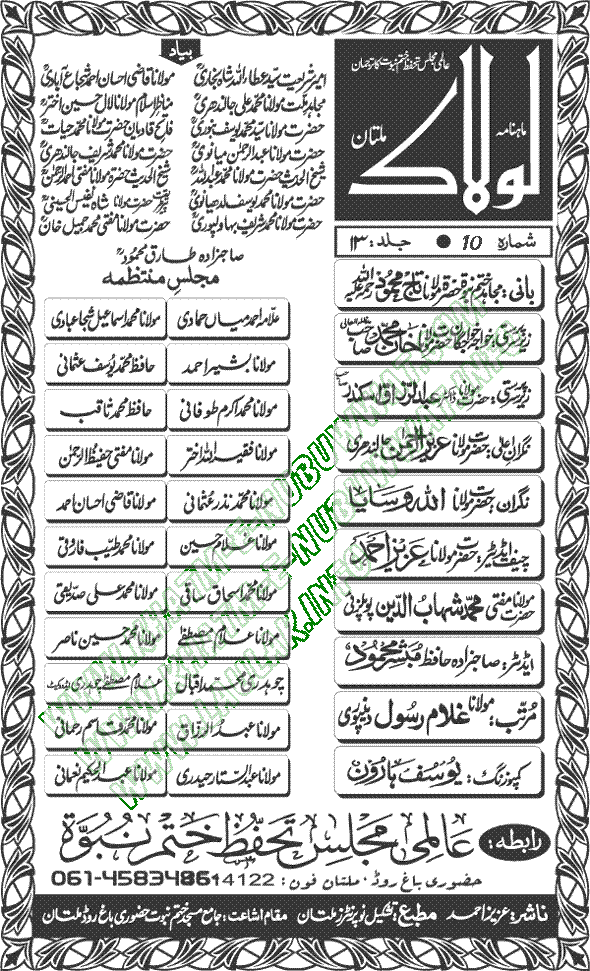 عالمی مجلس تحفظ ختم نبوت کا ترجمان
ماہنامہ
لولاک
ملتان
شمارہ 10 ● جلد: ۱۳
بانی: مجاہد ختم نبوۃ حضرت مولانا تاج محمود رحمۃ اللہ علیہ
زیر سرپرستی: خواجہ خواجگان حضرت مولانا خان محمد صاحب
زیر سرپرستی: حضرت مولانا ڈاکٹر عبد الرزاق اسکندر صاحب
نگران اعلیٰ: حضرت مولانا عزیز الرحمٰن جالندھری
نگران: حضرت مولانا اللہ وسایا
چیف ایڈیٹر: حضرت مولانا عزیز احمد
حضرت مولانا مفتی محمد شہاب الدین پوپلزئی
ایڈیٹر: صاحبزادہ حافظ مبشر محمود
مرتب: مولانا غلام رسول دینپوری
کمپوزنگ: یوسف ہارون
بیاد
امیر شریعت سید عطاء اللہ شاہ بخاری مولانا قاضی احسان احمد شجاع آبادی
مجاہد ملت مولانا محمد علی جالندھری مناظر اسلام مولانا لال حسین اختر
حضرت مولانا سید محمد یوسف بنوری فاتح قادیان حضرت مولانا محمد حیات
حضرت مولانا عبد الرحمٰن میانوی حضرت مولانا محمد شریف جالندھری
شیخ الحدیث حضرت مولانا محمد عبد اللہ شیخ الحدیث حضرت مولانا مفتی احمد الرحمٰن
حضرت مولانا محمد یوسف لدھیانوی حضرت مولانا شاہ نفیس الحسینی
حضرت مولانا محمد شریف بہاولپوری حضرت مولانا مفتی محمد جمیل خان
صاحبزادہ طارق محمود
مجلس منتظمہ
علامہ احمد میاں حمادی مولانا محمد اسماعیل شجاعبادی
مولانا بشیر احمد حافظ محمد یوسف عثمانی
مولانا محمد اکرم طوفانی حافظ محمد ثاقب
مولانا فقیر اللہ اختر مولانا مفتی حفیظ الرحمٰن
مولانا محمد نذر عثمانی مولانا قاضی احسان احمد
مولانا غلام حسین مولانا محمد طیب فاروقی
مولانا محمد اسحاق ساقی مولانا محمد علی صدیقی
مولانا غلام مصطفےٰ مولانا محمد حسین ناصر
چوہدری محمد اقبال غلام مصطفےٰ چوہدری ایڈووکیٹ
مولانا عبد الرزاق مولانا محمد قاسم رحمانی
مولانا عبد الستار حیدری مولانا عبد الحکیم نعمانی
رابطہ: عالمی مجلس تحفظ ختم نبوۃ
حضوری باغ روڈ، ملتان فون: 061-4583486
ناشر: عزیز احمد مطبع: تشکیل نو پرنٹرز ملتان مقام اشاعت: جامع مسجد ختم نبوت حضوری باغ روڈ ملتان